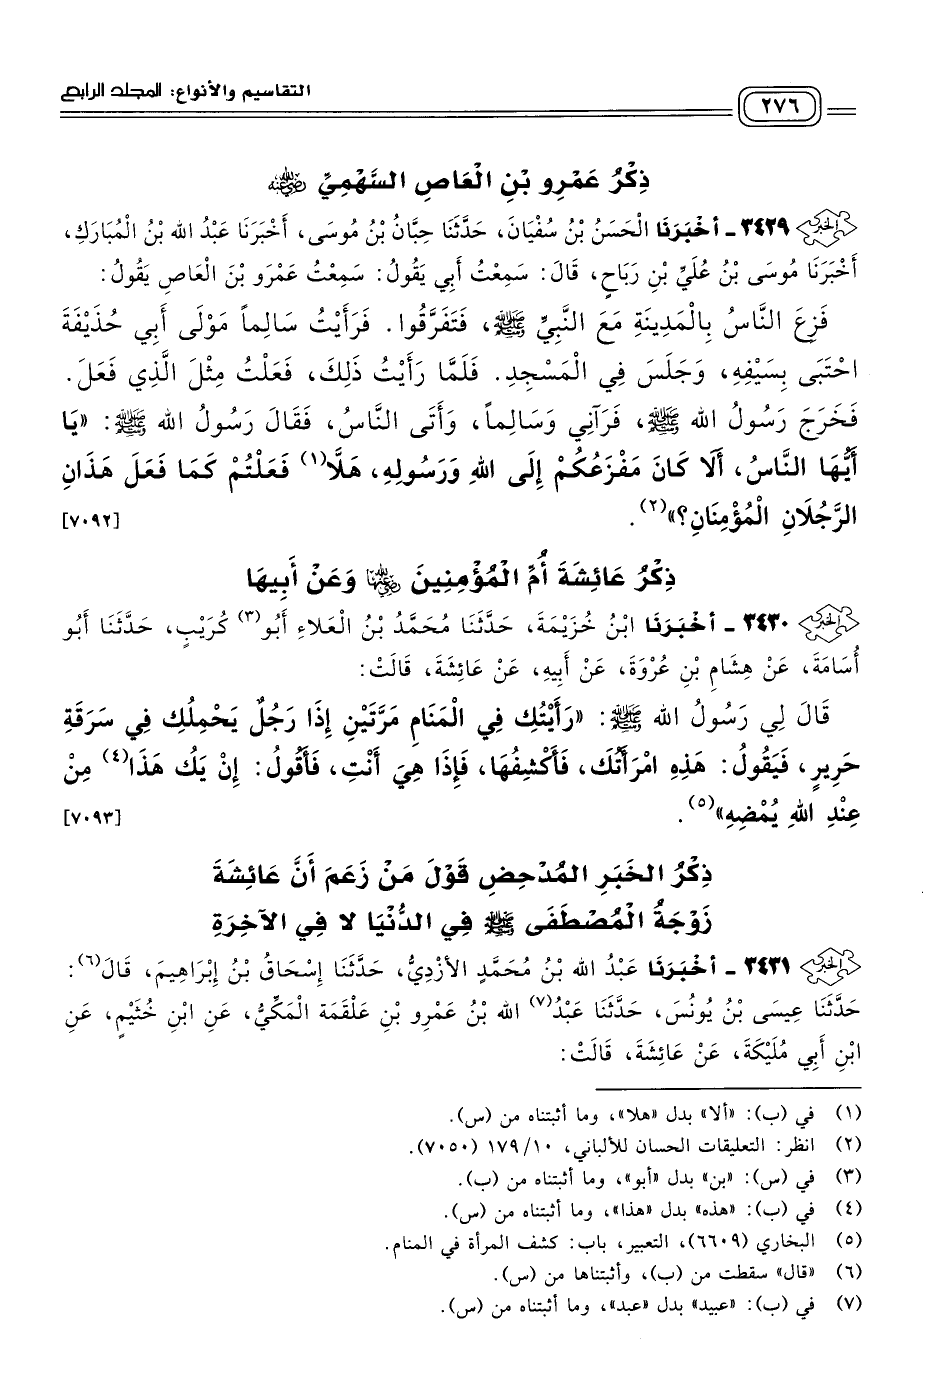 التقاسيم والأنواع: المجلد الرابع
٢٧٦
ذِكْرُ عَمْرِو بْنِ الْعَاصِ السَّهْمِيِّ رضي الله عنه
الخبر ٣٤٢٩ - أَخْبَرَنَا الْحَسَنُ بْنُ سُفْيَانَ، حَدَّثَنَا حِبَّانُ بْنُ مُوسَى، أَخْبَرَنَا عَبْدُ الله بْنُ الْمُبَارَكِ،
أَخْبَرَنَا مُوسَى بْنُ عُلَيِّ بْنِ رَبَاحٍ، قَالَ: سَمِعْتُ أَبِي يَقُولُ: سَمِعْتُ عَمْرَو بْنَ الْعَاصِ يَقُولُ:
فَزِعَ النَّاسُ بِالْمَدِينَةِ مَعَ النَّبِيِّ ﷺ، فَتَفَرَّقُوا. فَرَأَيْتُ سَالِماً مَوْلَى أَبِي حُذَيْفَةَ
احْتَبَى بِسَيْفِهِ، وَجَلَسَ فِي الْمَسْجِدِ. فَلَمَّا رَأَيْتُ ذَلِكَ، فَعَلْتُ مِثْلَ الَّذِي فَعَلَ.
فَخَرَجَ رَسُولُ الله ﷺ، فَرَآنِي وَسَالِماً، وَأَتَى النَّاسُ، فَقَالَ رَسُولُ الله ﷺ: «يَا
أَيُّهَا النَّاسُ، أَلَا كَانَ مَفْزَعُكُمْ إِلَى اللهِ وَرَسُولِهِ، هَلَّا(١) فَعَلْتُمْ كَمَا فَعَلَ هَذَانِ
الرَّجُلَانِ الْمُؤْمِنَانِ؟»(٢). [٧٠٩٢]
ذِكْرُ عَائِشَةَ أُمِّ الْمُؤْمِنِينَ رضي الله عنها وَعَنْ أَبِيهَا
الخبر ٣٤٣٠ - أَخْبَرَنَا ابْنُ خُزَيْمَةَ، حَدَّثَنَا مُحَمَّدُ بْنُ الْعَلَاءِ أَبُو(٣) كُرَيْبٍ، حَدَّثَنَا أَبُو
أُسَامَةَ، عَنْ هِشَامِ بْنِ عُرْوَةَ، عَنْ أَبِيهِ، عَنْ عَائِشَةَ، قَالَتْ:
قَالَ لِي رَسُولُ الله ﷺ: «رَأَيْتُكِ فِي الْمَنَامِ مَرَّتَيْنِ إِذَا رَجُلٌ يَحْمِلُكِ فِي سَرَقَةِ
حَرِيرٍ، فَيَقُولُ: هَذِهِ امْرَأَتُكَ، فَأَكْشِفُهَا، فَإِذَا هِيَ أَنْتِ، فَأَقُولُ: إِنْ يَكُ هَذَا(٤) مِنْ
عِنْدِ اللهِ يُمْضِهِ»(٥). [٧٠٩٣]
ذِكْرُ الْخَبَرِ الْمُدْحِضِ قَوْلَ مَنْ زَعَمَ أَنَّ عَائِشَةَ
زَوْجَةُ الْمُصْطَفَى ﷺ فِي الدُّنْيَا لا فِي الآخِرَةِ
الخبر ٣٤٣١ - أَخْبَرَنَا عَبْدُ الله بْنُ مُحَمَّدٍ الأَزْدِيُّ، حَدَّثَنَا إِسْحَاقُ بْنُ إِبْرَاهِيمَ، قَالَ(٦):
حَدَّثَنَا عِيسَى بْنُ يُونُسَ، حَدَّثَنَا عَبْدُ(٧) الله بْنُ عَمْرِو بْنِ عَلْقَمَةَ الْمَكِّيُّ، عَنِ ابْنِ خُثَيْمٍ، عَنِ
ابْنِ أَبِي مُلَيْكَةَ، عَنْ عَائِشَةَ، قَالَتْ:
(١) في (ب): «ألا» بدل «هلا»، وما أثبتناه من (س).
(٢) انظر: التعليقات الحسان للألباني، ١٠/١٧٩ (٧٠٥٠).
(٣) في (س): «بن» بدل «أبو»، وما أثبتناه من (ب).
(٤) في (ب): «هذه» بدل «هذا»، وما أثبتناه من (س).
(٥) البخاري (٦٦٠٩)، التعبير، باب: كشف المرأة في المنام.
(٦) «قال» سقطت من (ب)، وأثبتناها من (س).
(٧) في (ب): «عبيد» بدل «عبد»، وما أثبتناه من (س).